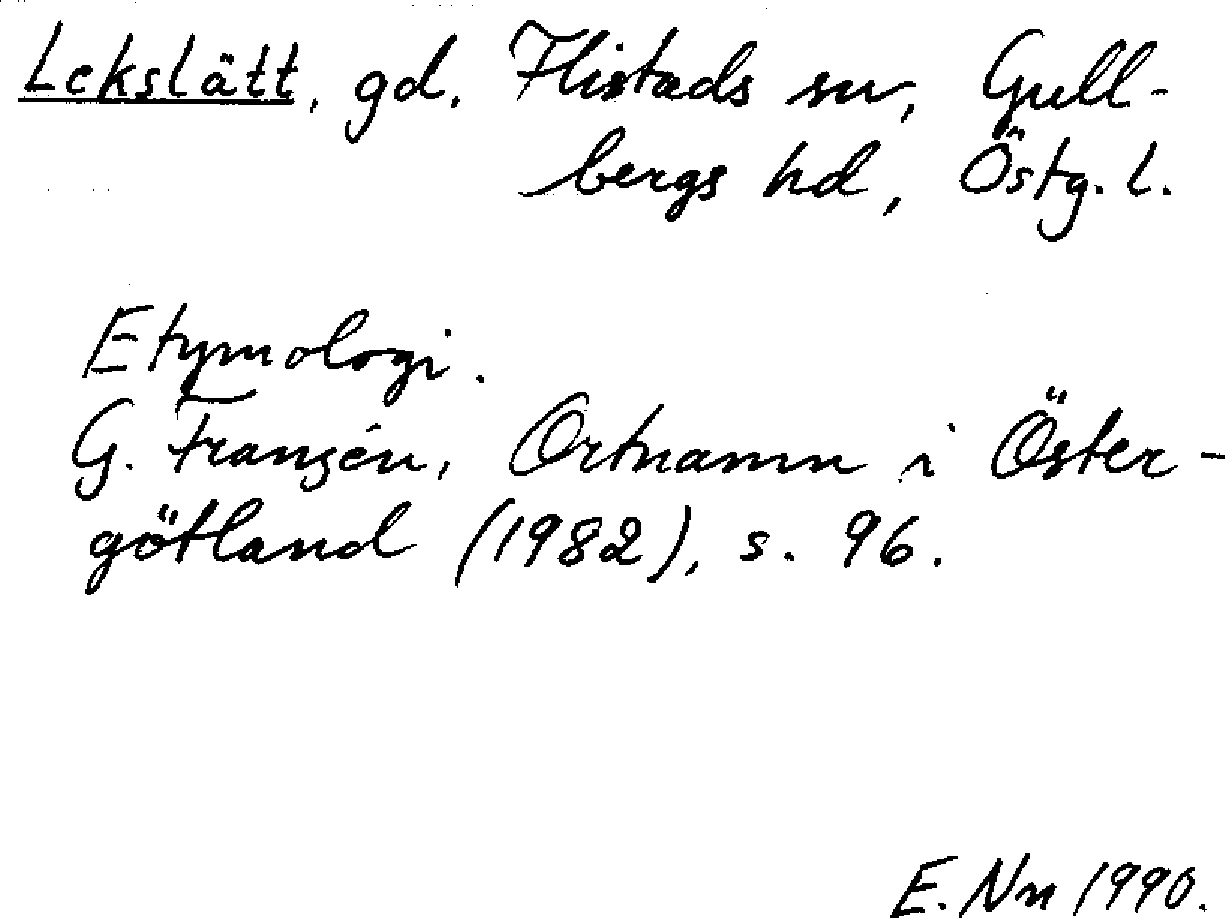 Lekslätt, gd. Flistads sn, Gull-
bergs hd, Östg. l.
Etymologi.
G. Franzén, Ortnamn i Öster-
götland (1982), s. 96.
E. Nn 1990.